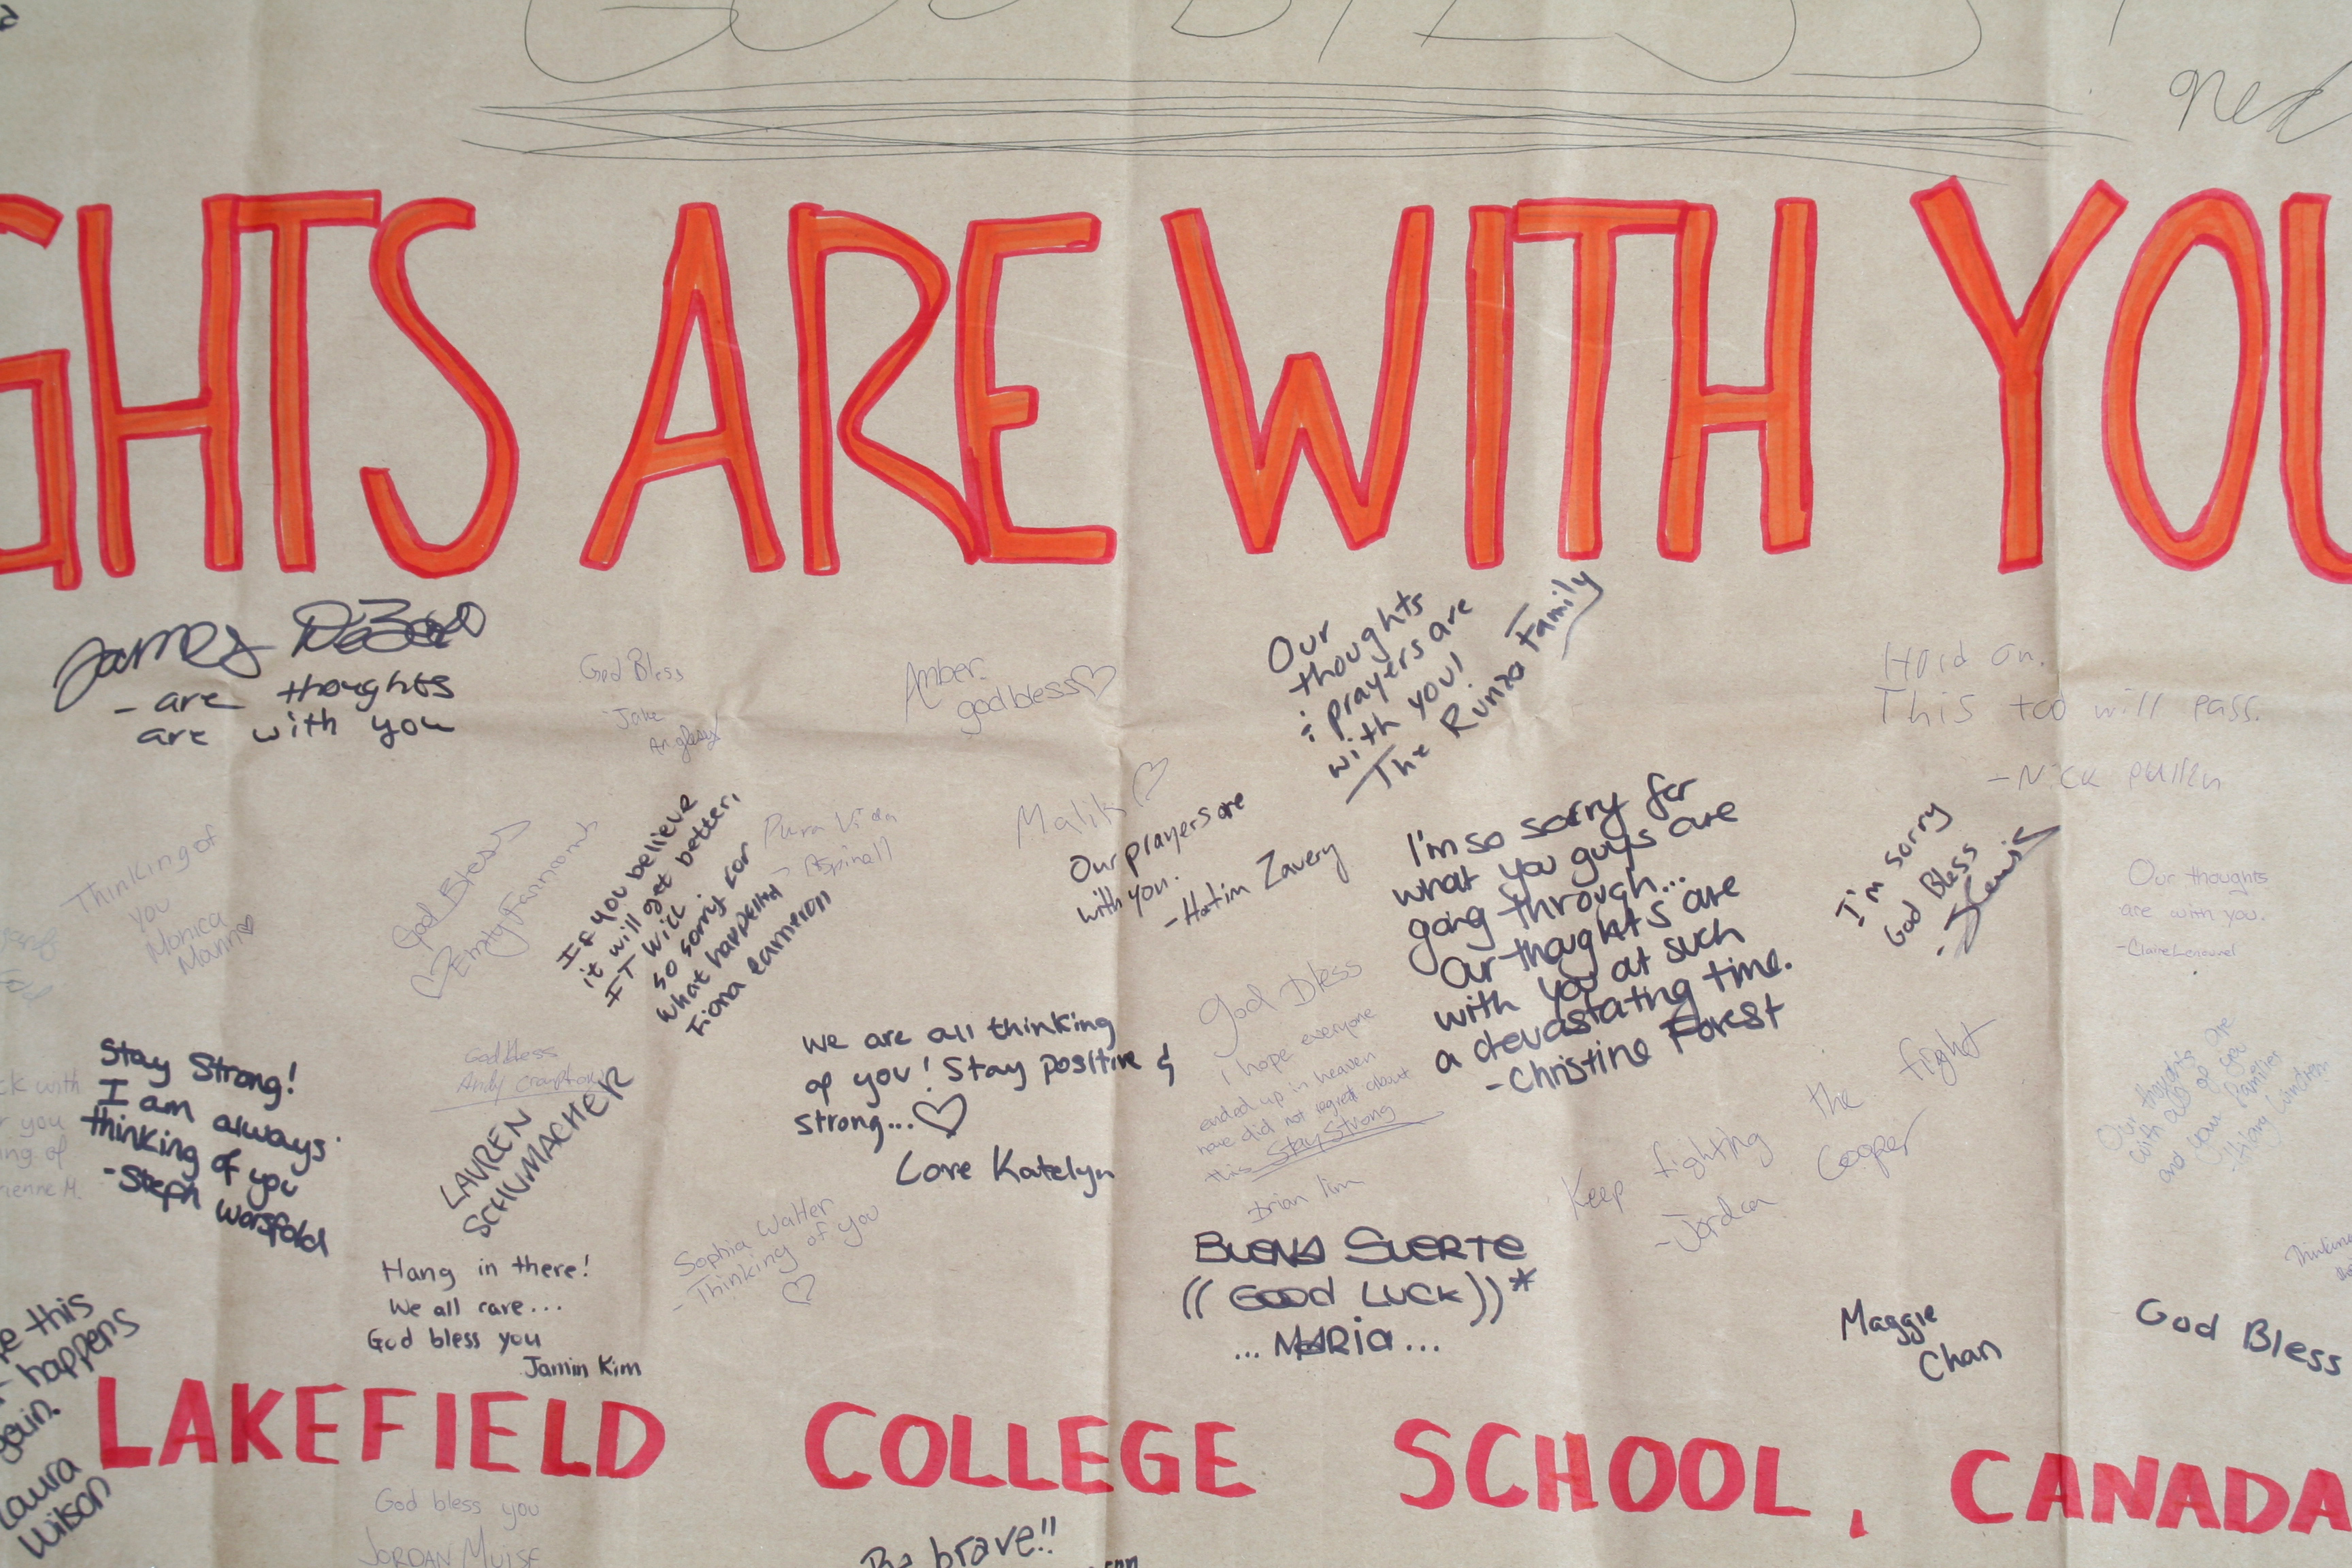 GHTS ARE WITH YOU
James
- are thoughts
are with you
God Bless
- Jake
Amber.
god bless♡
Our
thoughts
& prayers are
with you!
The Runza Family
Hold on.
This too will pass.
- Nick Pullen
Thinking of
you
Monica
Mann♡
God Bless
If you believe
it will get better,
IT WILL
so sorry for
what happened
Fiona Cameron
Pura Vida
Malik ♡
Our prayers are
with you.
- Hatim Zavery
I'm so sorry for
what you guys are
going through...
Our thoughts are
with you at such
a devastating time.
- Christine Forest
I'm sorry
God Bless
Our thoughts
are with you.
Stay Strong!
I am always
thinking of you
- Steph Worsfold
God bless
Andy
LAUREN
SCHUMACHER
we are all thinking
of you! Stay positive &
strong...♡
Love Katelyn
God Bless
I hope everyone
ended up in heaven
have did not regret about
this Stay Strong
Brian lim
Keep fighting the fight
- Jordan Cooper
Our thoughts are
with all of you
and your families
- Hilary
Sophia Walter
- Thinking of you
♡
Hang in there!
We all care...
God bless you
Jamin Kim
BUENA SUERTE
((GOOD LUCK))*
... MARIA ...
Maggie
Chan
God Bless
this
happens
Laura
Wilson
LAKEFIELD COLLEGE SCHOOL, CANADA
God bless you
JORDAN MUISE
Be brave!!